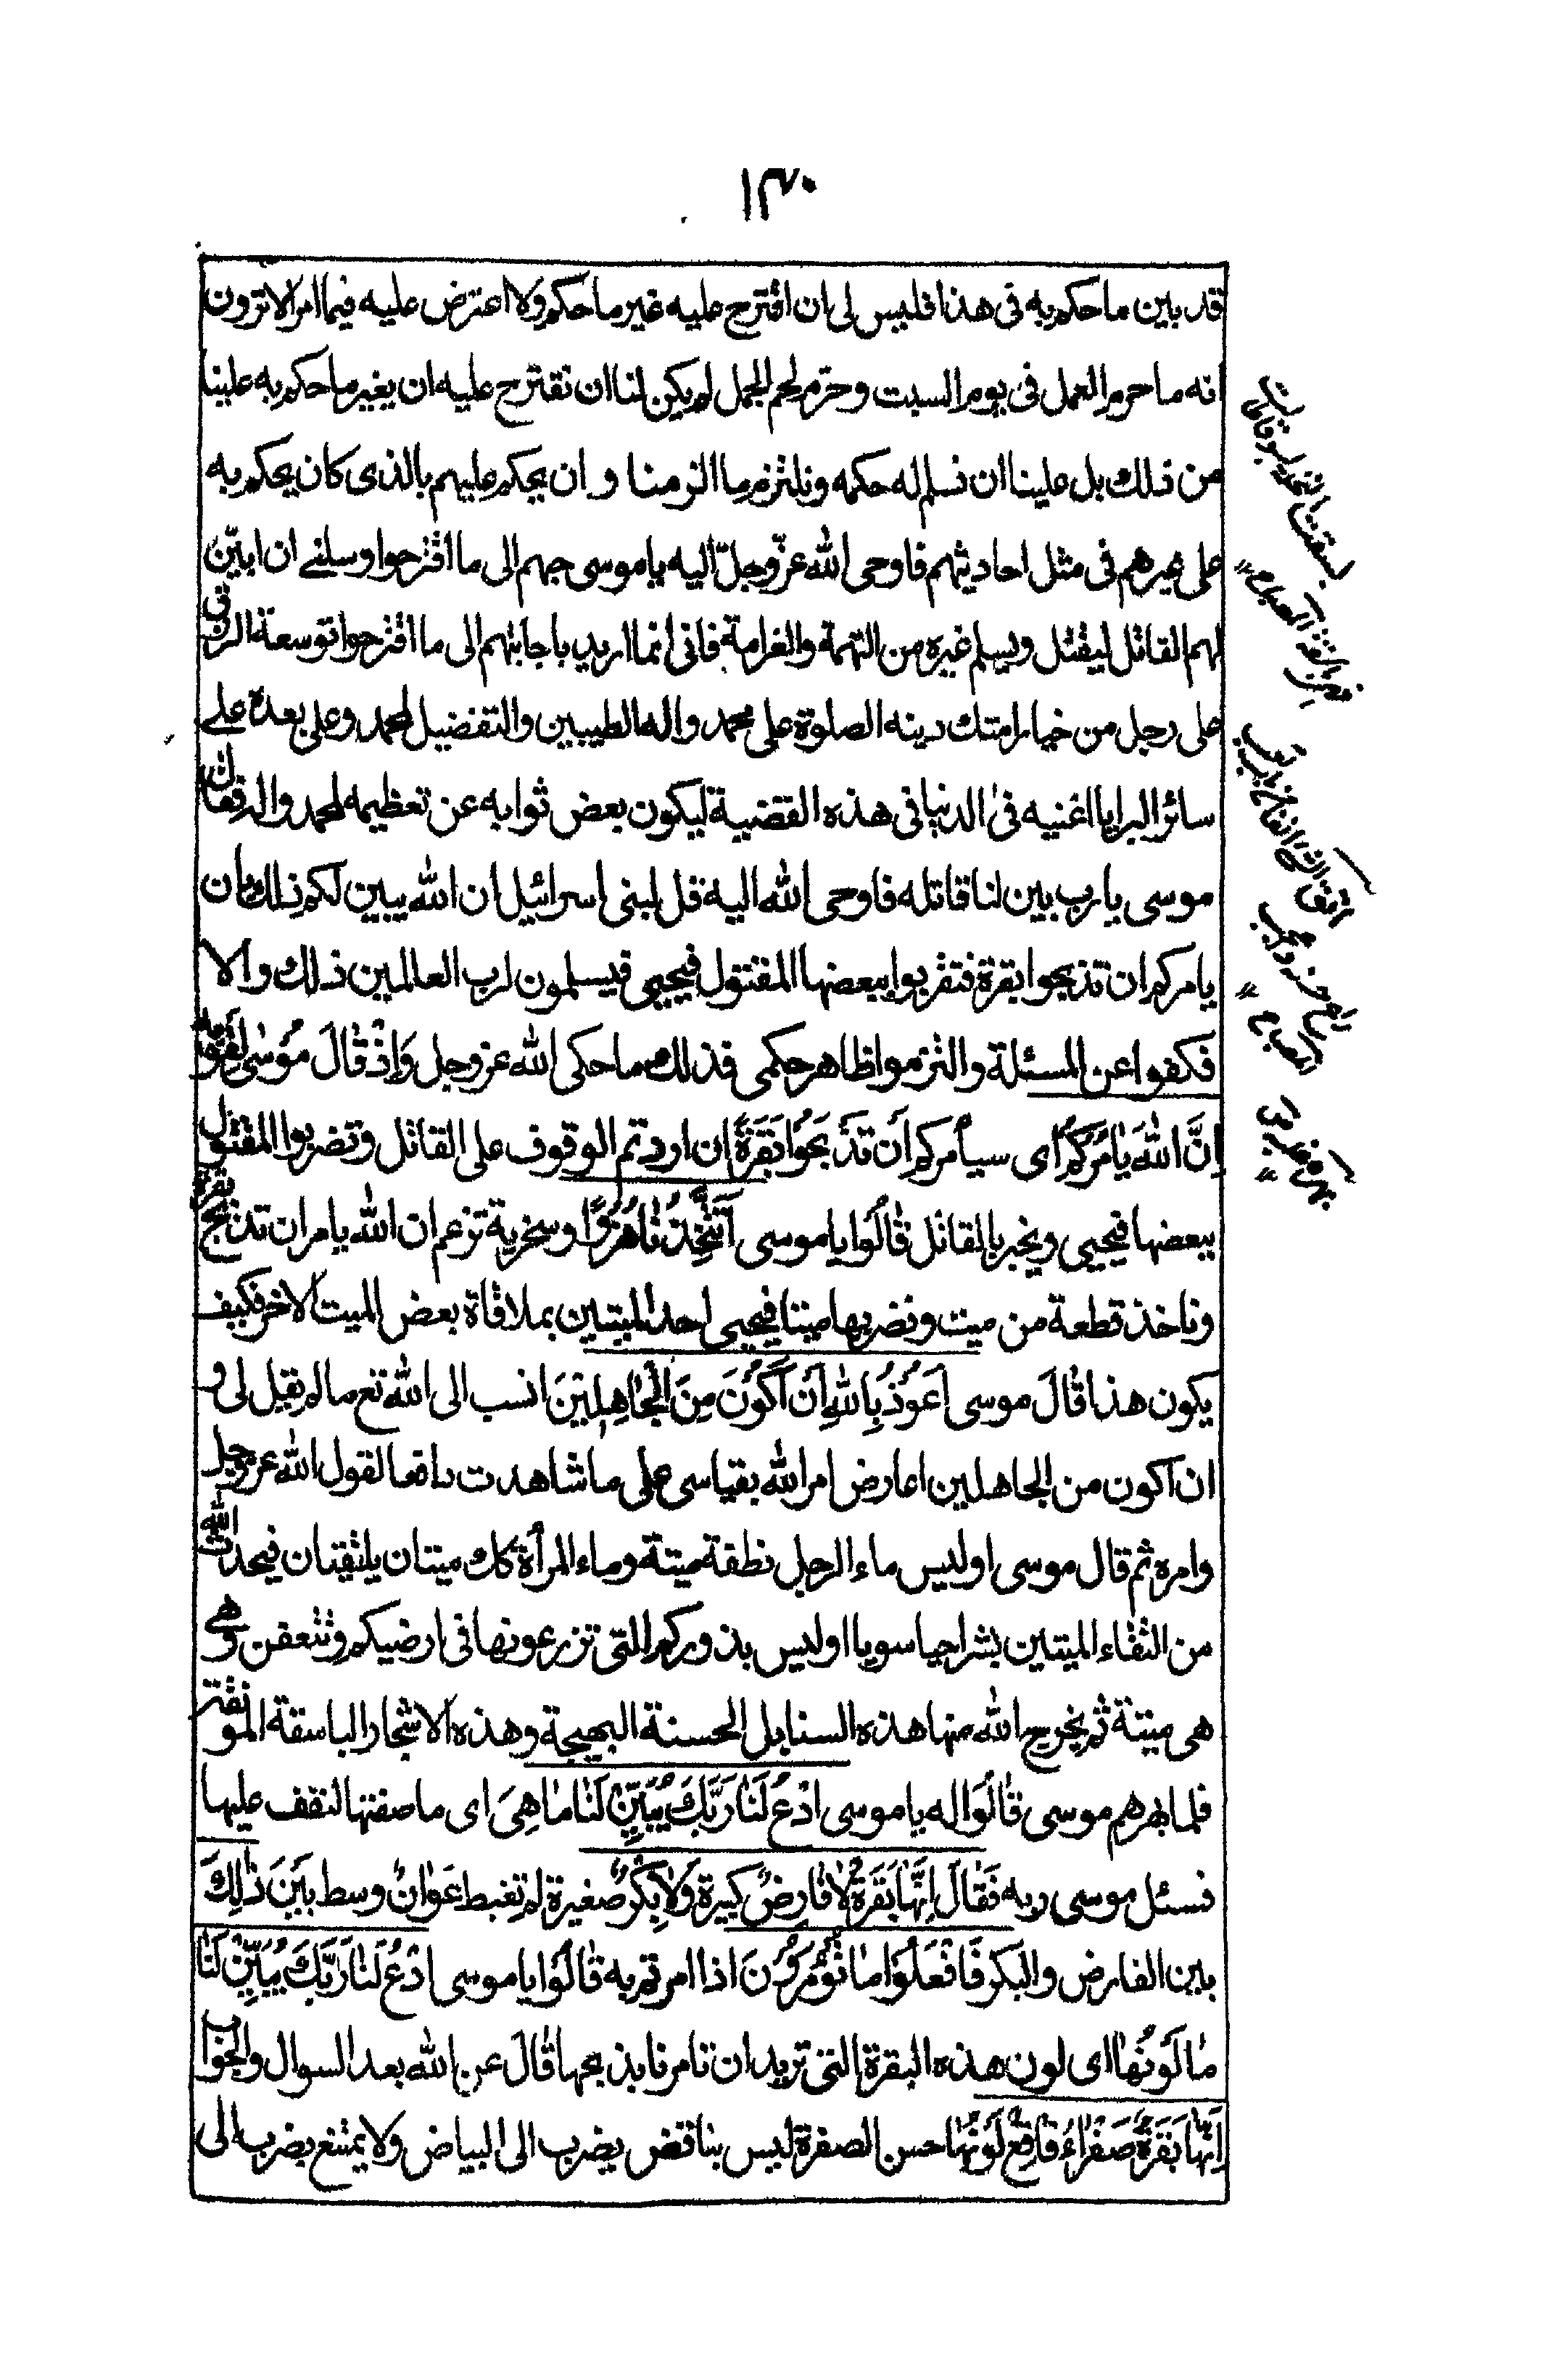 ١٣٠
قد بين ما حكم به فى هذا فليس لى ان اقترح عليه غير ما حكم ولا اعترض عليه فيما امر الا ترون
انه ما حرم العمل فى يوم السبت وحرّم لحم الجمل لم يكن لنا ان نقترح عليه ان يغير ما حكم به علينا
من ذلك بل علينا ان نسلم له حكمه ونلتزم ما الزمنا و ان يحكم عليهم بالذى كان يحكم به
على غيرهم فى مثل احاديثهم فاوحى الله عزّ وجلّ اليه يا موسى جبهم الى ما اقترحوا وسلنى ان ابيّن
لهم القاتل ليقتل ويسلم غيره من التهمة والغرامة فانى انما اريد باجابتهم الى ما اقترحوا توسعة الرزق
على رجل من خيار امتك دينه الصلوة على محمد واله الطيبين والتفضيل لمحمد وعلى بعده على
سائر البرايا اغنيه فى الدنيا فى هذه القضية ليكون بعض ثوابه عن تعظيمه لمحمد واله فقال
موسى يا رب بين لنا قاتله فاوحى الله اليه قل لبنى اسرائيل ان الله يبين لكم ذلك بان
يامركم ان تذبحوا بقرة فتضربوا ببعضها المقتول فيحيى فيسلمون لرب العالمين ذلك والا
فكفوا عن المسئلة والتزموا ظاهر حكمى فذلك ما حكى الله عز وجل وَاِذْ قٰالَ مُوْسٰى لِقَوْمِهٖ
اِنَّ اللهَ يَاْمُرُكُمْ اى سيأمركم اَنْ تَذْبَحُوْا بَقَرَةً ان اردتم الوقوف على القاتل وتضربوا المقتول
ببعضها فيحيى ويخبر بالقاتل قٰالُوْا يا موسى اَتَتَّخِذُنٰا هُزُوًا وسخرية تزعم ان الله يامر ان تذبح بقرة
وناخذ قطعة من ميت ونضرب بها ميتا فيحيى احد الميتين بملاقاة بعض الميت الاخر فكيف
يكون هذا قٰالَ موسى اَعُوْذُ بِاللهِ اَنْ اَكُوْنَ مِنَ الْجٰاهِلِيْنَ انسب الى الله تع ما لم يقل لى و
ان اكون من الجاهلين اعارض امر الله بقياسى على ما شاهدت دافعا لقول الله عز وجل
وامره ثم قال موسى او ليس ماء الرجل نطفة ميتة وماء المرأة كك ميتان يلتقيان فيحدث الله
من التقاء الميتين بشرا حيا سويا اوليس بذوركم التى تزرعونها فى ارضيكم وتتعفن وهى
هى ميتة ثم يخرج الله منها هذه السنابل الحسنة البهيجة وهذه الاشجار الباسقة المونقة
فلما بهرهم موسى قٰالُوْا له يا موسى ادْعُ لَنٰا رَبَّكَ يُبَيِّنْ لَنٰا مٰا هِيَ اى ما صفتها لنقف عليها
فسئل موسى ربه فَقٰالَ اِنَّهٰا بَقَرَةٌ لٰا فٰارِضٌ كبيرة وَلٰا بِكْرٌ صغيرة لم تغبط عَوٰانٌ وسط بَيْنَ ذٰلِكَ
بين الفارض والبكر فَافْعَلُوْا مٰا تُؤْمَرُوْنَ اذا امرتم به قٰالُوْا يا موسى ادْعُ لَنٰا رَبَّكَ يُبَيِّنْ لَنٰا
مٰا لَوْنُهٰا اى لون هذه البقرة التى تريد ان تامرنا بذبحها قٰالَ عن الله بعد السوال والجواب
اِنَّهٰا بَقَرَةٌ صَفْرٰاءُ فٰاقِعٌ لَوْنُهٰا حسن الصفرة ليس بناقض يضرب الى البياض ولا بمشبع يضرب الى